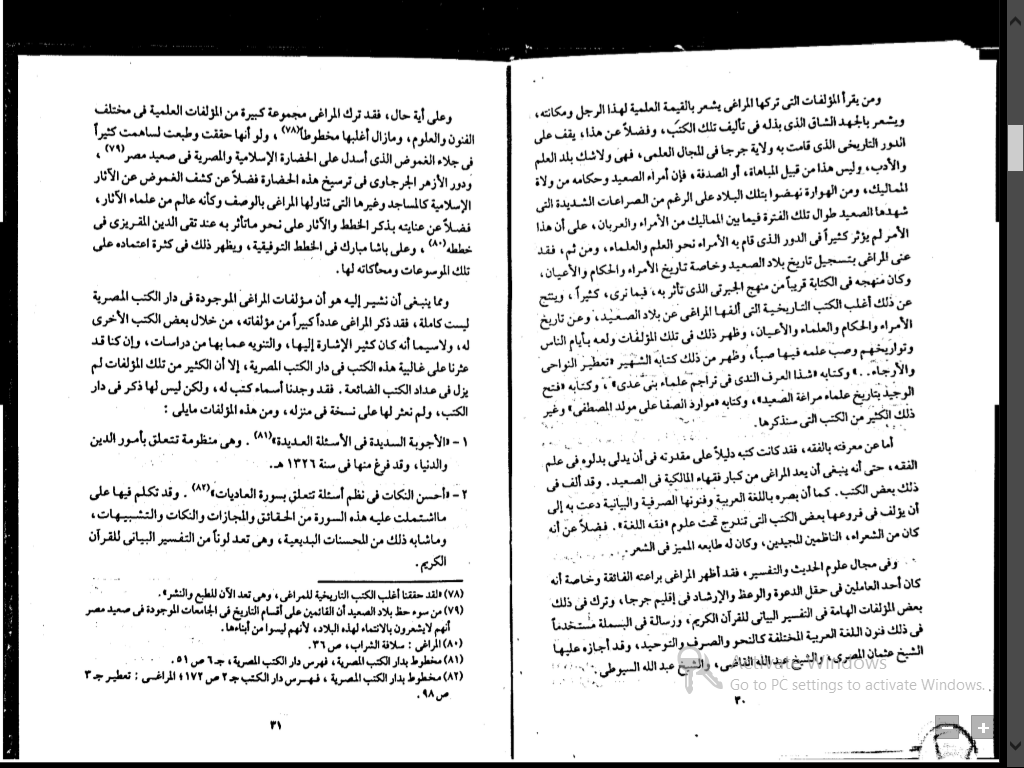 ومن يقرأ المؤلفات التى تركها المراغى يشعر بالقيمة العلمية لهذا الرجل ومكانته،
ويشعر بالجهد الشاق الذى بذله فى تأليف تلك الكتب، وفضلاً عن هذا، يقف على
الدور التاريخى الذى قامت به ولاية جرجا فى المجال العلمى، فهى ولاشك بلد العلم
والأدب، وليس هذا من قبيل المباهاة، أو الصدفة، فإن أمراء الصعيد وحكامه من ولاة
المماليك، ومن الهوارة نهضوا بتلك البلاد على الرغم من الصراعات الشديدة التى
شهدها الصعيد طوال تلك الفترة فيما بين المماليك من الأمراء والعربان، على أن هذا
الأمر لم يؤثر كثيراً فى الدور الذى قام به الأمراء نحو العلم والعلماء، ومن ثم، فقد
عنى المراغى بتسجيل تاريخ بلاد الصعيد وخاصة تاريخ الأمراء والحكام والأعيان،
وكان منهجه فى الكتابة قريباً من منهج الجبرتى الذى تأثر به، فيما نرى، كثيراً، وينتج
عن ذلك أغلب الكتب التاريخية التى ألفها المراغى عن بلاد الصعيد، وعن تاريخ
الأمراء والحكام والعلماء والأعيان، وظهر ذلك فى تلك المؤلفات ولعه بأيام الناس
وتواريخهم وصب علمه فيها صباً، وظهر من ذلك كتابه الشهير «تعطير النواحى
والأرجاء..» وكتابه «شذا العرف الندى فى تراجم علماء بنى عدى»، وكتابه «فتح
الوجيد بتاريخ علماء مراغة الصعيد»، وكتابه «موارد الصفا على مولد المصطفى» وغير
ذلك الكثير من الكتب التى سنذكرها.
أما عن معرفته بالفقه، فقد كانت كتبه دليلاً على مقدرته فى أن يدلى بدلوه فى علم
الفقه، حتى أنه ينبغى أن يعد المراغى من كبار فقهاء المالكية فى الصعيد. وقد ألف فى
ذلك بعض الكتب. كما أن بصره باللغة العربية وفنونها الصرفية والبيانية دعت به إلى
أن يؤلف فى فروعها بعض الكتب التى تندرج تحت علوم «فقه اللغة». فضلاً عن أنه
كان من الشعراء، الناظمين المجيدين، وكان له طابعه المميز فى الشعر.
وفى مجال علوم الحديث والتفسير، فقد أظهر المراغى براعته الفائقة وخاصة أنه
كان أحد العاملين فى حقل الدعوة والوعظ والإرشاد فى إقليم جرجا، وترك فى ذلك
بعض المؤلفات الهامة فى التفسير البيانى للقرآن الكريم، ورسالة فى البسملة مستخدماً
فى ذلك فنون اللغة العربية المختلفة كالنحو والصرف والتوحيد، وقد أجازه عليها
الشيخ عثمان المصرى، والشيخ عبد الله القاضى، والشيخ عبد الله السيوطى.
٣٠
وعلى أية حال، فقد ترك المراغى مجموعة كبيرة من المؤلفات العلمية فى مختلف
الفنون والعلوم، ومازال أغلبها مخطوطاً(٧٨)، ولو أنها حققت وطبعت لساهمت كثيراً
فى جلاء الغموض الذى أسدل على الحضارة الإسلامية والمصرية فى صعيد مصر(٧٩)،
ودور الأزهر الجرجاوى فى ترسيخ هذه الحضارة فضلاً عن كشف الغموض عن الآثار
الإسلامية كالمساجد وغيرها التى تناولها المراغى بالوصف وكأنه عالم من علماء الآثار،
فضلاً عن عنايته بذكر الخطط والآثار على نحو ماتأثر به عند تقى الدين المقريزى فى
خططه(٨٠)، وعلى باشا مبارك فى الخطط التوفيقية، ويظهر ذلك فى كثرة اعتماده على
تلك الموسوعات ومحاكاته لها.
ومما ينبغى أن نشير إليه هو أن مؤلفات المراغى الموجودة فى دار الكتب المصرية
ليست كاملة، فقد ذكر المراغى عدداً كبيراً من مؤلفاته، من خلال بعض الكتب الأخرى
له، ولاسيما أنه كان كثير الإشارة إليها، والتنويه عما بها من دراسات، وإن كنا قد
عثرنا على غالبية هذه الكتب فى دار الكتب المصرية، إلا أن الكثير من تلك المؤلفات لم
يزل فى عداد الكتب الضائعة. فقد وجدنا أسماء كتب له، ولكن ليس لها ذكر فى دار
الكتب، ولم نعثر لها على نسخة فى منزله، ومن هذه المؤلفات مايلى :
١ - «الأجوبة السديدة فى الأسئلة العديدة»(٨١). وهى منظومة تتعلق بأمور الدين
والدنيا، وقد فرغ منها فى سنة ١٣٢٦ هـ.
٢ - «أحسن النكات فى نظم أسئلة تتعلق بسورة العاديات»(٨٢). وقد تكلم فيها على
مااشتملت عليه هذه السورة من الحقائق والمجازات والنكات والتشبيهات،
وماشابه ذلك من المحسنات البديعية، وهى تعد لوناً من التفسير البيانى للقرآن
الكريم.
(٧٨) «لقد حققنا أغلب الكتب التاريخية للمراغى، وهى تعد الآن للطبع والنشر».
(٧٩) من سوء حظ بلاد الصعيد أن القائمين على أقسام التاريخ فى الجامعات الموجودة فى صعيد مصر
أنهم لايشعرون بالانتماء لهذه البلاد، لأنهم ليسوا من أبناءها.
(٨٠) المراغى : سلافة الشراب، ص ٣٦.
(٨١) مخطوط بدار الكتب المصرية، فهرس دار الكتب المصرية، جـ ٦ ص ٥١.
(٨٢) مخطوط بدار الكتب المصرية، فهرس دار الكتب جـ ٢ ص ١٧٢؛ المراغى : تعطير جـ ٣
ص ٩٨.
٣١
Activate Windows
Go to PC settings to activate Windows.